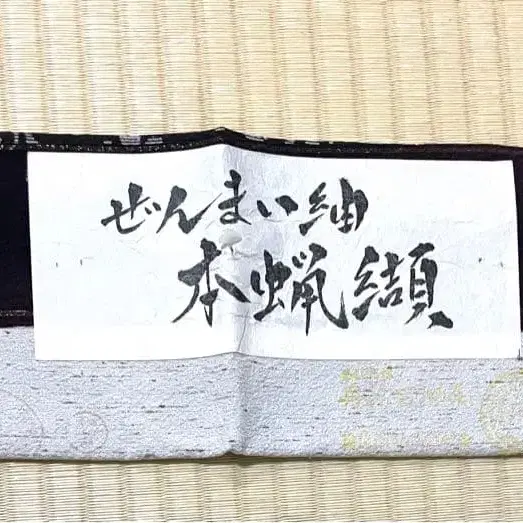 ぜんまい紬
本蝋纈